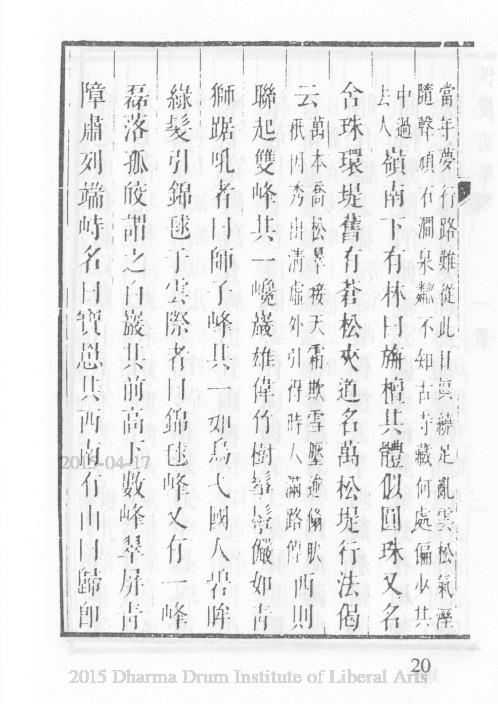 當年夢行路難從此目眞繞足亂雲松氣溼
隨聲頑石澗泉 不知古寺藏何處偏少其
中過
去人嶺南下有林曰旃檀其體似圓珠又名
含珠環堤舊有蒼松夾道名萬松堤行法偈
云萬本喬松 接天霜欺雪壓 西則
秖因秀出淸虛外引得時人滿路傳
聯起雙峰其一巉巖雄偉竹樹鬅鬙儼如靑
獅踞吼者曰師子峰其一如烏弋國人碧眸
綠髮引錦毬于雲際者曰錦毬峰又有一峰
磊落孤皎謂之白巖其前高下數峰翠屛靑
障肅列端峙名曰寶 其西南有山曰歸卽
2015-04-17
20
2015 Dharma Drum Institute of Liberal Arts